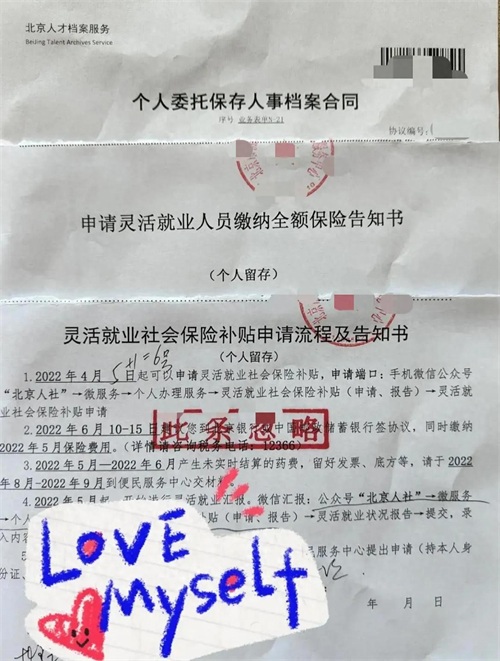 北京人才档案服务
Beijing Talent Archives Service
个人委托保存人事档案合同
序号 业务表单N-21
协议编号:
申请灵活就业人员缴纳全额保险告知书
(个人留存)
灵活就业社会保险补贴申请流程及告知书
(个人留存)
1.2022年4月 5日起可以申请灵活就业社会保险补贴,申请端口:手机微信公众号
“北京人社”→微服务→个人办理服务→灵活就业社会保险补贴(申请、报告)→灵活就
业社会保险补贴申请
2.2022年6月10-15日 储蓄银行签协议,同时缴纳
2022年5月保险费用。(详情请咨询税务电话:12366)
此条忽略
3.2022年5月—2022年6月产生未实时结算的药费,留好发票、底方等,请于2022
年8月-2022年9月到便民服务中心交材料
4.2022年5月起 进行灵活就业汇报。微信汇报:公众号“北京人社”→微服务
→个人 (申请、报告)→灵活就业状况报告→提交,录
入内容
民服务中心提出申请(持本人身
份证、
LOVE
Myself
年 月 日